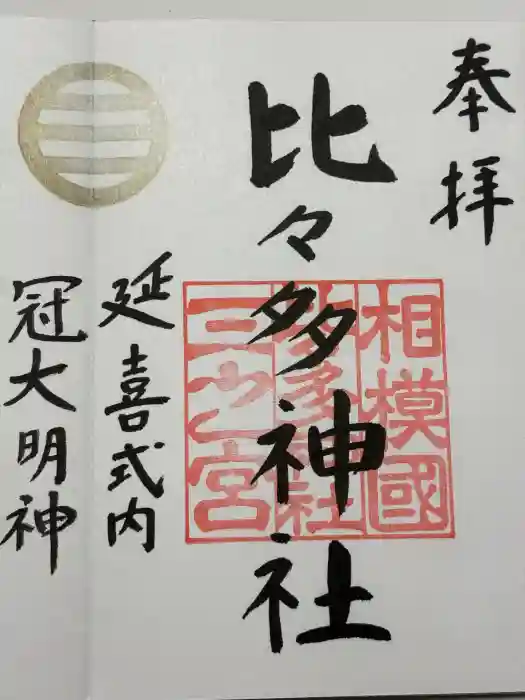 奉拝
比々多神社
相模國
三之宮
延喜式内
冠大明神